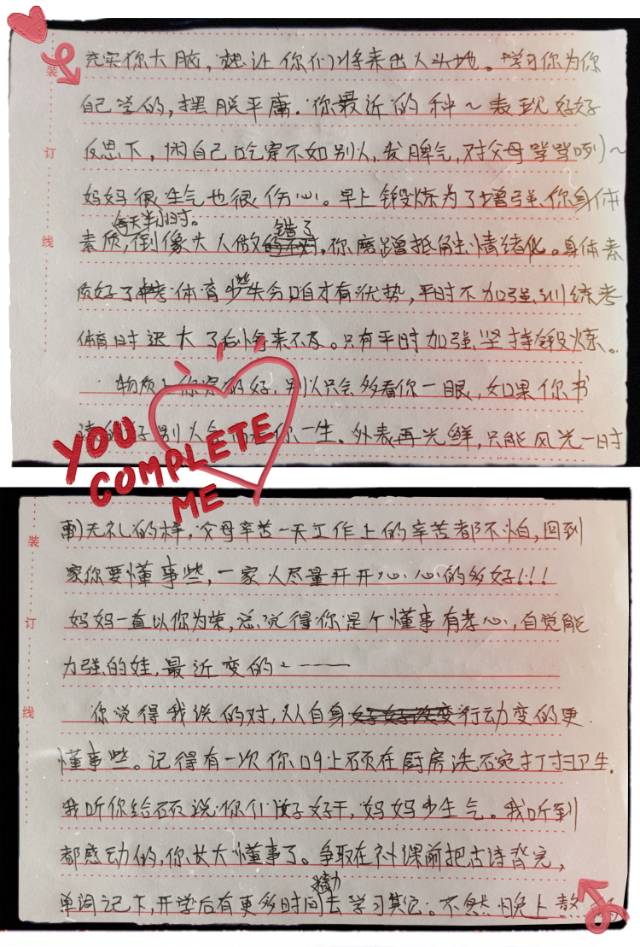 充实你大脑，想让你们将来出人头地。学习你为你
装
自己学的，摆脱平庸。你最近的种~表现好好
订
反思下，闲自己吃穿不如别人，发脾气，对父母哔哔咧)~
妈妈很生气也很伤心。早上锻炼为了增强你身体
线
每天半小时。
错了
素质，倒像大人做的不对，你磨蹭抵触情绪化。身体素
质好了中考体育少些失分咱才有优势，平时不加强训练考
体育时迟大了后将来不及。只有平时加强坚持锻炼。
物质上你穿的好，别人只会多看你一眼，如果你书
读的好别人会你一生。外表再光鲜，只能风光一时
YOU
COMPLETE
ME
无礼的样，父母辛苦一天工作上的辛苦都不怕，回到
装
家你要懂事些，一家人尽量开开心心的多好!!!
订
妈妈一直以你为荣，总说得你是个懂事有孝心，自觉能
力强的娃，最近变的、———
线
你说得我说的对，从自身好好改变行动变的更
懂事些。记得有一次你口9上硕在厨房洗碗打扫卫生.
我听你给硕说你们做好好干，妈妈少生气。我听到
都感动的，你长大懂事了。争取在补课前把古诗背完，
单词记下，开学后有更多时间去学习其它。不然晚上熬